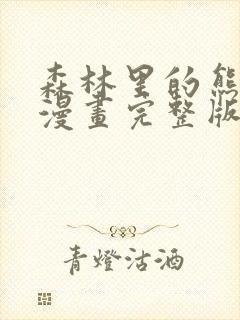 森林里的熊
漫畫完整版
青燈沽酒